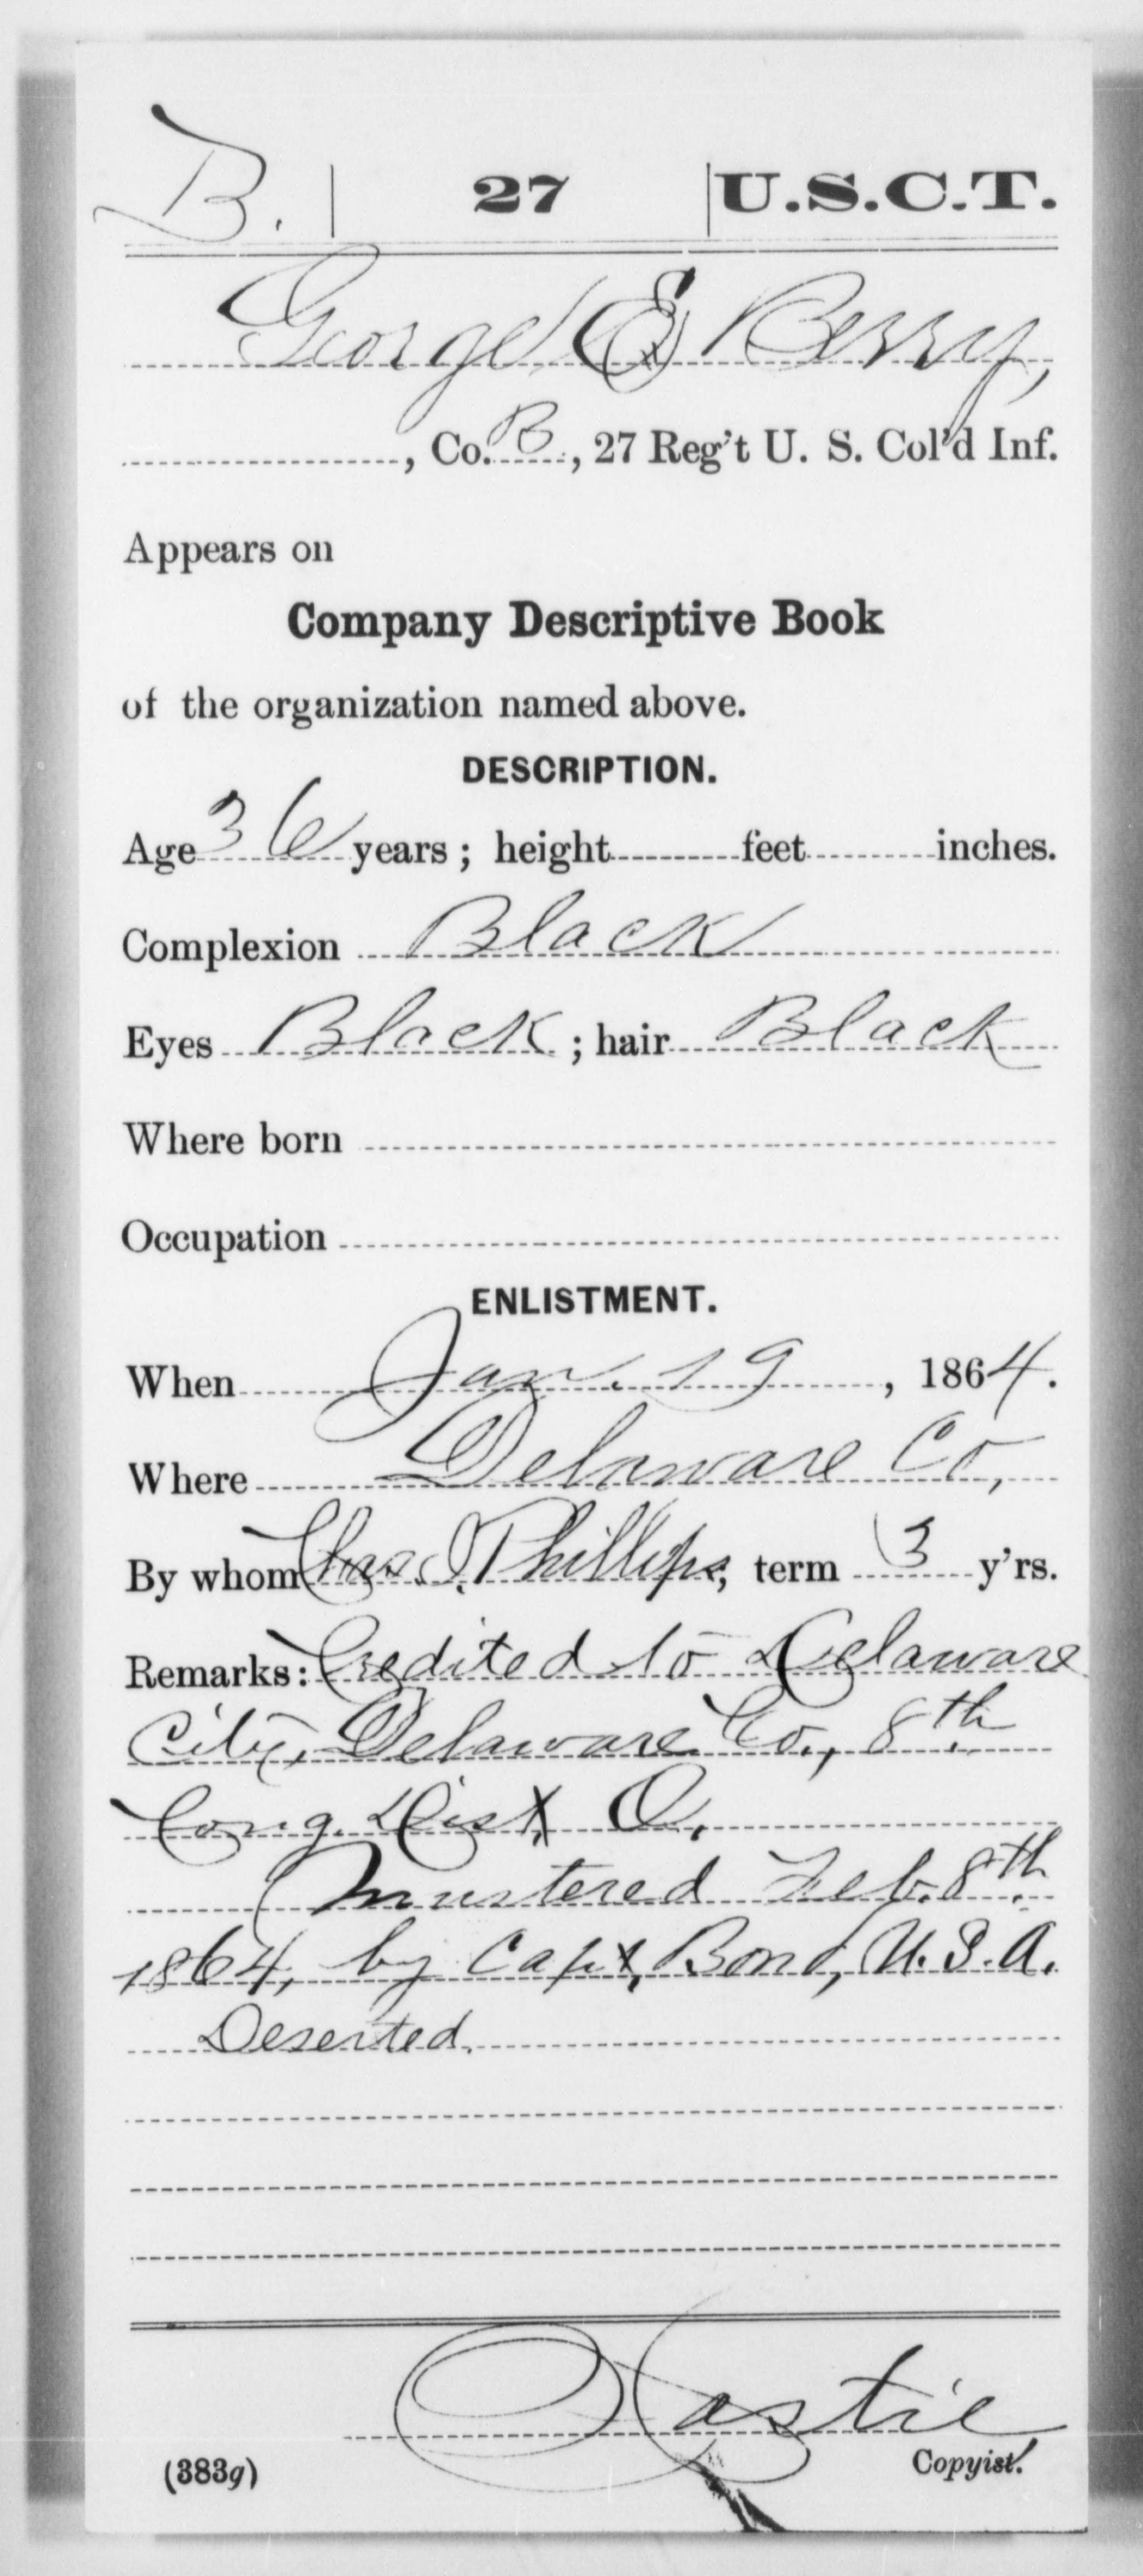 B. 27 U.S.C.T.
George E Berry,
, Co. B, 27 Reg't U. S. Col'd Inf.
Appears on
Company Descriptive Book
of the organization named above.
DESCRIPTION.
Age 36 years; height feet inches.
Complexion Black
Eyes Black; hair Black
Where born
Occupation
ENLISTMENT.
When Jan. 19, 1864.
Where Delaware Co,
By whom Chas. J. Phillips, term 3 y'rs.
Remarks: Credited to Delaware
City, Delaware Co., 8th
Cong. Dist, O.
Mustered Feb. 8th
1864, by Capt, Bond, U.S.A.
Deserted.
Hastie
(383g) Copyist.